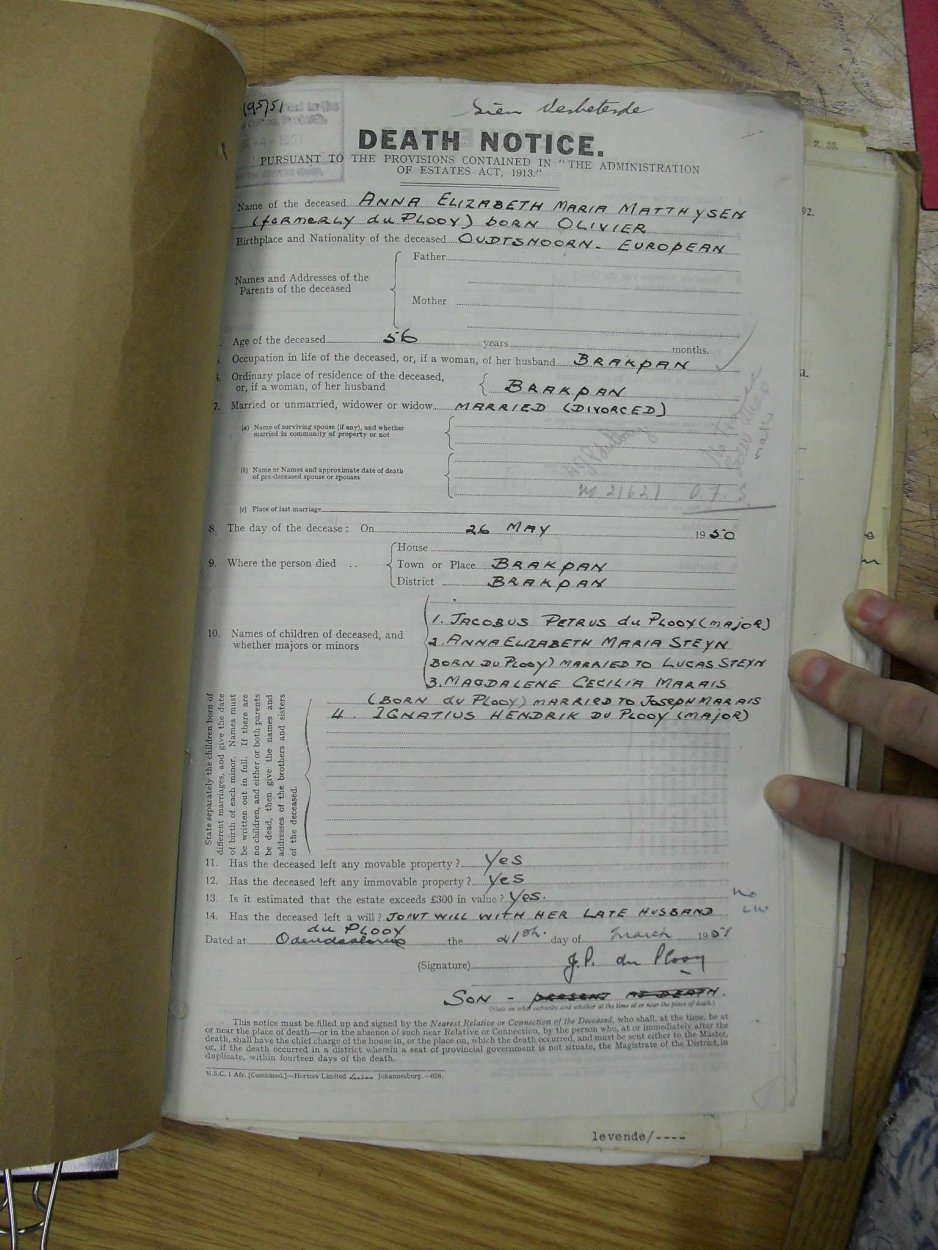 195/51
Sien Verbeterde
DEATH NOTICE.
PURSUANT TO THE PROVISIONS CONTAINED IN "THE ADMINISTRATION
OF ESTATES ACT, 1913."
Name of the deceased ANNA ELIZABETH MARIA MATTHYSEN
(formerly du PLOOY) born OLIVIER
Birthplace and Nationality of the deceased OUDTSHOORN - EUROPEAN
Father
Names and Addresses of the
Parents of the deceased
Mother
Age of the deceased 56 years months.
Occupation in life of the deceased, or, if a woman, of her husband BRAKPAN
Ordinary place of residence of the deceased,
or, if a woman, of her husband BRAKPAN
7. Married or unmarried, widower or widow MARRIED (DIVORCED)
(a) Name of surviving spouse (if any), and whether
married in community of property or not
(b) Name or Names and approximate date of death
of pre-deceased spouse or spouses
21621 O.F.S
(c) Place of last marriage
8. The day of the decease: On 26 MAY 1950
9. Where the person died ..
House
Town or Place BRAKPAN
District BRAKPAN
10. Names of children of deceased, and
whether majors or minors
1. JACOBUS PETRUS du PLOOY (major)
2. ANNA ELIZABETH MARIA STEYN
BORN DU PLOOY) MARRIED TO LUCAS STEYN
3. MAGDALENE CECILIA MARAIS
(BORN du PLOOY) MARRIED TO JOSEPH MARAIS
4. IGNATIUS HENDRIK DU PLOOY (major)
State separately the children born of
different marriages, and give the date
of birth of each minor. Names must
be written out in full. If there are
no children, and either or both parents
be dead, then give the names and
addresses of the brothers and sisters
of the deceased.
11. Has the deceased left any movable property? Yes
12. Has the deceased left any immovable property? Yes
13. Is it estimated that the estate exceeds £300 in value? Yes.
14. Has the deceased left a will? JOINT WILL WITH HER LATE HUSBAND
du PLOOY
Dated at Odendaalsrus the 21st day of March 1951
(Signature) J.P. du Plooy
SON - PRESENT AT DEATH.
(State in what capacity and whether at the time at or near the place of death.)
This notice must be filled up and signed by the Nearest Relative or Connection of the Deceased, who shall, at the time, be at
or near the place of death—or in the absence of such near Relative or Connection, by the person who, at or immediately after the
death, shall have the chief charge of the house in, or the place on, which the death occurred, and must be sent either to the Master,
or, if the death occurred in a district wherein a seat of provincial government is not situate, the Magistrate of the District, in
duplicate, within fourteen days of the death.
M.S.C. 1 Afr. [Combined.]—Hortors Limited Johannesburg.—626.
levende/----